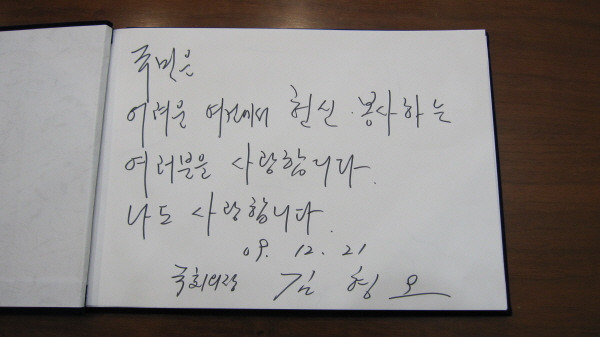 국민은
어려운 여건에서 헌신·봉사하는
여러분을 사랑합니다.
나도 사랑합니다.
09. 12. 21
국회의장 김 형 오